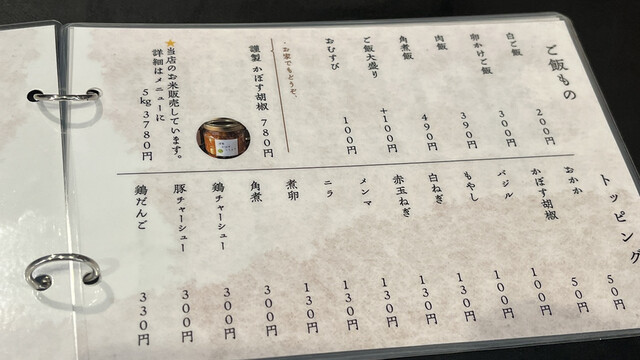 ご飯もの
白ご飯 200円
卵かけご飯 300円
肉飯 390円
角煮飯 490円
ご飯大盛り +100円
おむすび 100円
、お家でもどうぞ、
謹製 かぼす胡椒 780円
★当店のお米販売しています。
詳細はメニューに
5kg 3780円
トッピング
おかか 50円
かぼす胡椒 50円
バジル 100円
もやし 100円
白ねぎ 130円
赤玉ねぎ 130円
メンマ 130円
ニラ 130円
煮卵 130円
角煮 300円
鶏チャーシュー 300円
豚チャーシュー 300円
鶏だんご 330円